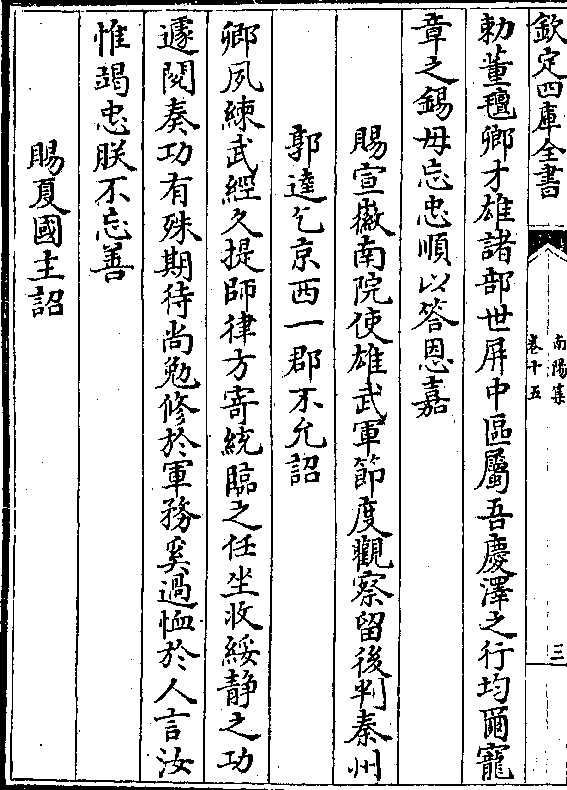 欽定四庫全書
南陽集
卷十五
三
勅董氊卿才雄諸部世屏中區屬吾慶澤之行均爾寵
章之錫毋忘忠順以答恩嘉
賜宣徽南院使雄武軍節度觀察留後判秦州
郭逵乞京西一郡不允詔
卿夙練武經久提師律方寄統臨之任坐收綏静之功
遽閱奏功有殊期待尚勉修於軍務奚過恤於人言汝
惟竭忠朕不忘善
賜夏國主詔